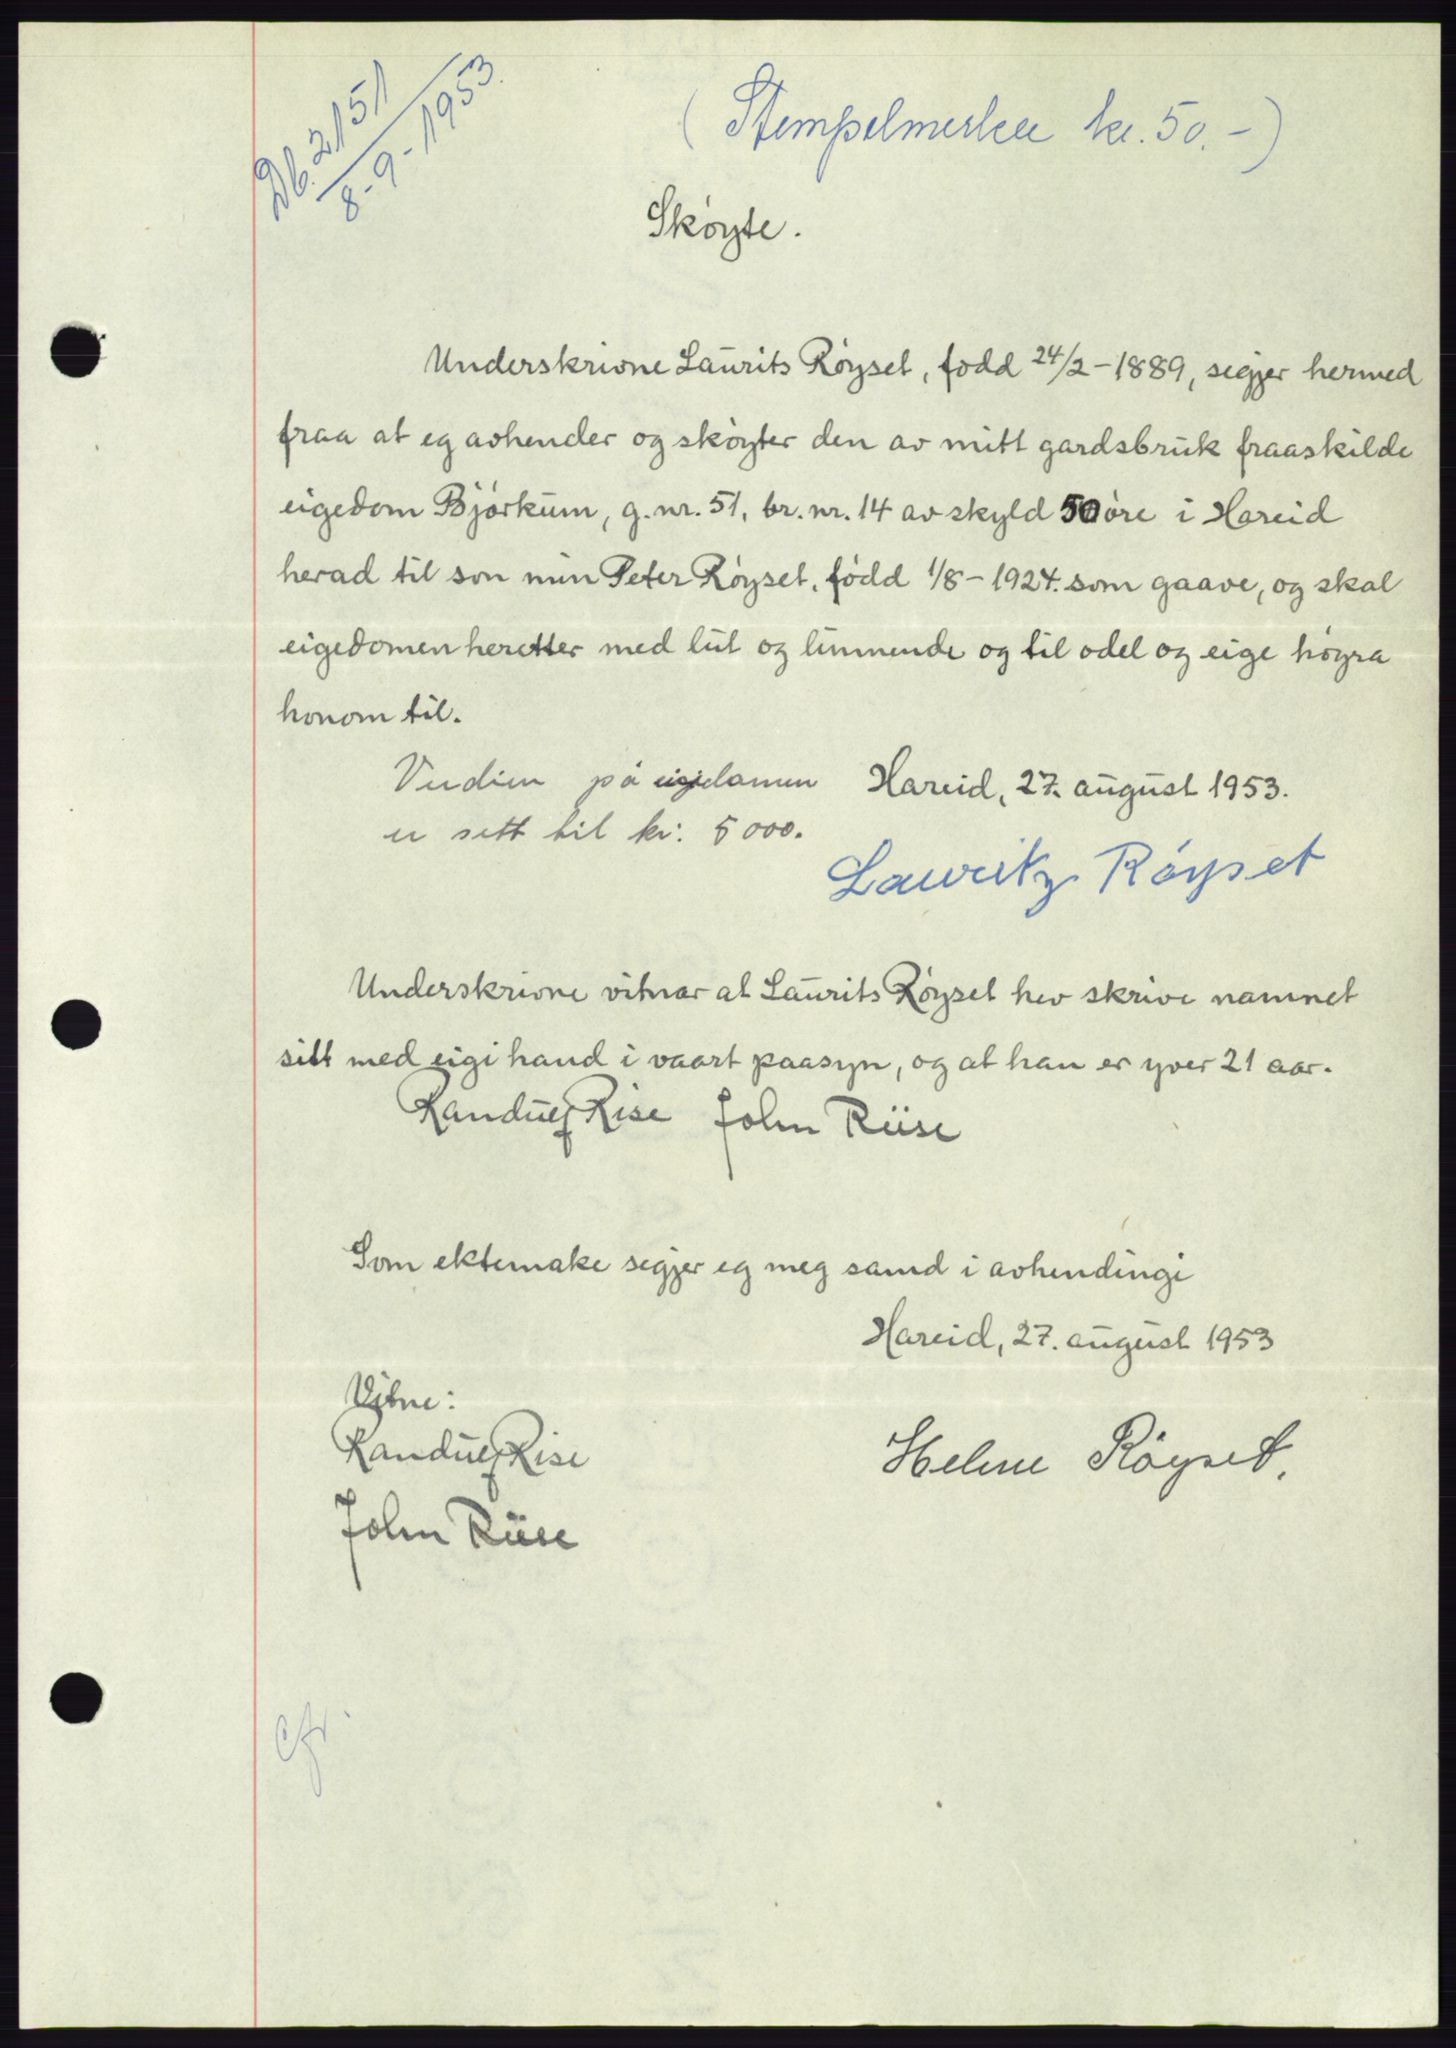 Db. 2151
8-9-1953.
(Stempelmerker kr. 50.-)
Skøyte.
Underskrivne Laurits Røyset, fødd 24/2-1889, segjer hermed
fraa at eg avhender og skøyter den av mitt gardsbruk fraaskilde
eigedom Bjørkum, g. nr. 51, br. nr. 14 av skyld 50 øre i Hareid
herad til son min Peter Røyset, fødd 1/8-1924. som gaave, og skal
eigedomen heretter med lut og lunnende og til odel og eige høyra
honom til.
Verdien på eigedomen
er sett til kr. 5000.
Hareid, 27. august 1953.
Lauritz Røyset
Underskrivne vitnar at Laurits Røyset hev skrive namnet
sitt med eigi hand i vaart paasyn, og at han er yver 21 aar.
Randulf Rise John Riise
Som ektemake segjer eg meg samd i avhendingi
Hareid, 27. august 1953
Vitne:
Randulf Rise
Helene Røyset.
John Riise